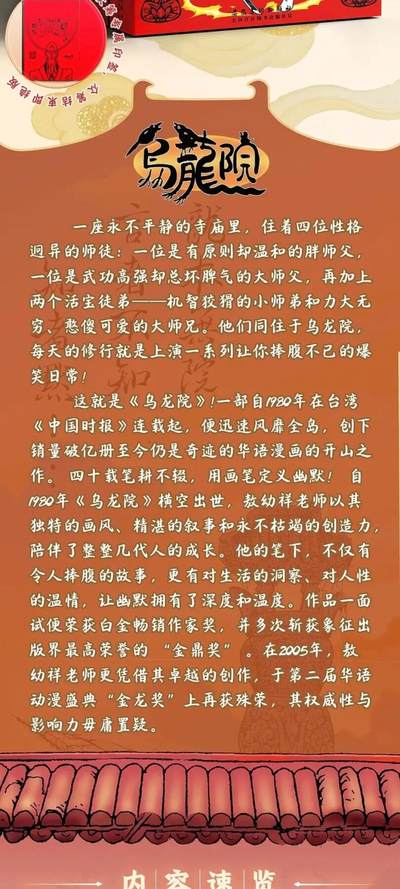 众筹结束即绝版
烏龍院
一座永不平静的寺庙里，住着四位性格
迥异的师徒：一位是有原则却温和的胖师父，
一位是武功高强却总坏脾气的大师父，再加上
两个活宝徒弟——机智狡猾的小师弟和力大无
穷、憨傻可爱的大师兄。他们同住于乌龙院，
每天的修行就是上演一系列让你捧腹不已的爆
笑日常！
这就是《乌龙院》!一部自1980年在台湾
《中国时报》连载起，便迅速风靡全岛，创下
销量破亿册至今仍是奇迹的华语漫画的开山之
作。 四十载笔耕不辍，用画笔定义幽默！ 自
1980年《乌龙院》横空出世，敖幼祥老师以其
独特的画风、精湛的叙事和永不枯竭的创造力，
陪伴了整整几代人的成长。他的笔下，不仅有
令人捧腹的故事，更有对生活的洞察、对人性
的温情，让幽默拥有了深度和温度。作品一面
试便荣获白金畅销作家奖，并多次斩获象征出
版界最高荣誉的 “金鼎奖” 。在2005年，敖
幼祥老师更凭借其卓越的创作，于第二届华语
动漫盛典“金龙奖”上再获殊荣，其权威性与
影响力毋庸置疑。
内容速览